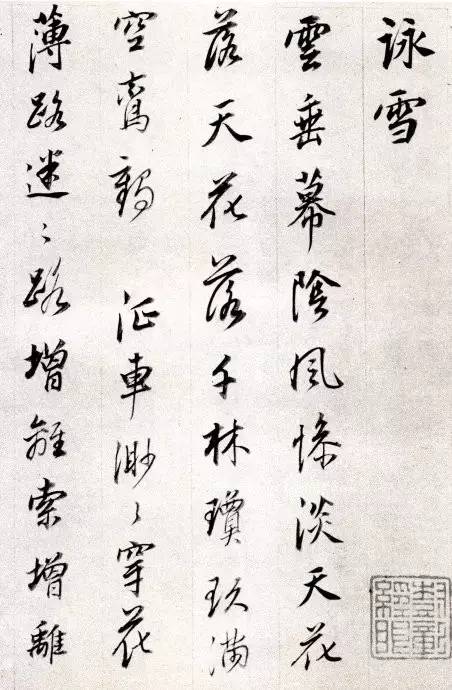 詠雪
雲垂幕陰風慘淡天花
落天花落千林瓊玖滿
空鸞鶴 征車渺々穿花
薄路迷々路增離索增離